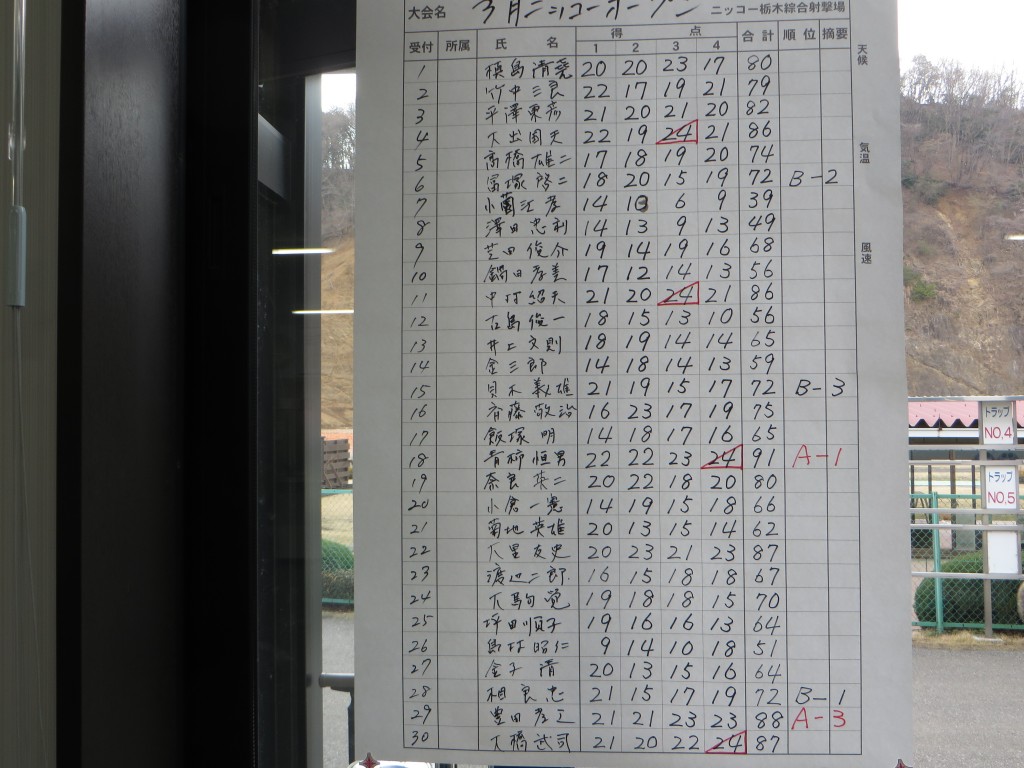 大会名 3月ニッコーオープン ニッコー栃木綜合射撃場
受付 所属 氏名 得点 1 2 3 4 合計 順位 摘要
1 槙島清 20 20 23 17 80
2 竹中三良 22 17 19 21 79
3 平澤東 21 20 21 20 82
4 大出国夫 22 19 24 21 86
5 高橋雄二 17 18 19 20 74
6 冨塚啓二 18 20 15 19 72 B-2
7 小薗江孝 14 10 6 9 39
8 澤田忠利 14 13 9 13 49
9 芝田俊介 19 14 19 16 68
10 鍋田孝 17 12 14 13 56
11 中村紹夫 21 20 24 21 86
12 古島俊一 18 15 13 10 56
13 井上文則 18 19 14 14 65
14 金三郎 14 18 14 13 59
15 貝木義雄 21 19 15 17 72 B-3
16 斉藤敬治 16 23 17 19 75
17 飯塚明 14 18 17 16 65
18 青柳恒男 22 22 23 24 91 A-1
19 奈良英二 20 22 18 20 80
20 小倉一憲 14 19 15 18 66
21 菊地英雄 20 13 15 14 62
22 大里友史 20 23 21 23 87
23 渡辺二郎 16 15 18 18 67
24 大駒覚 19 18 18 15 70
25 坪田順子 19 16 16 13 64
26 島村昭仁 9 14 10 18 51
27 金子清 20 13 15 16 64
28 相良忠 21 15 17 19 72 B-1
29 豊田孝 21 21 23 23 88 A-3
30 大橋武司 21 20 22 24 87
天候
気温
風速
トラップ
NO.4
トラップ
NO.5